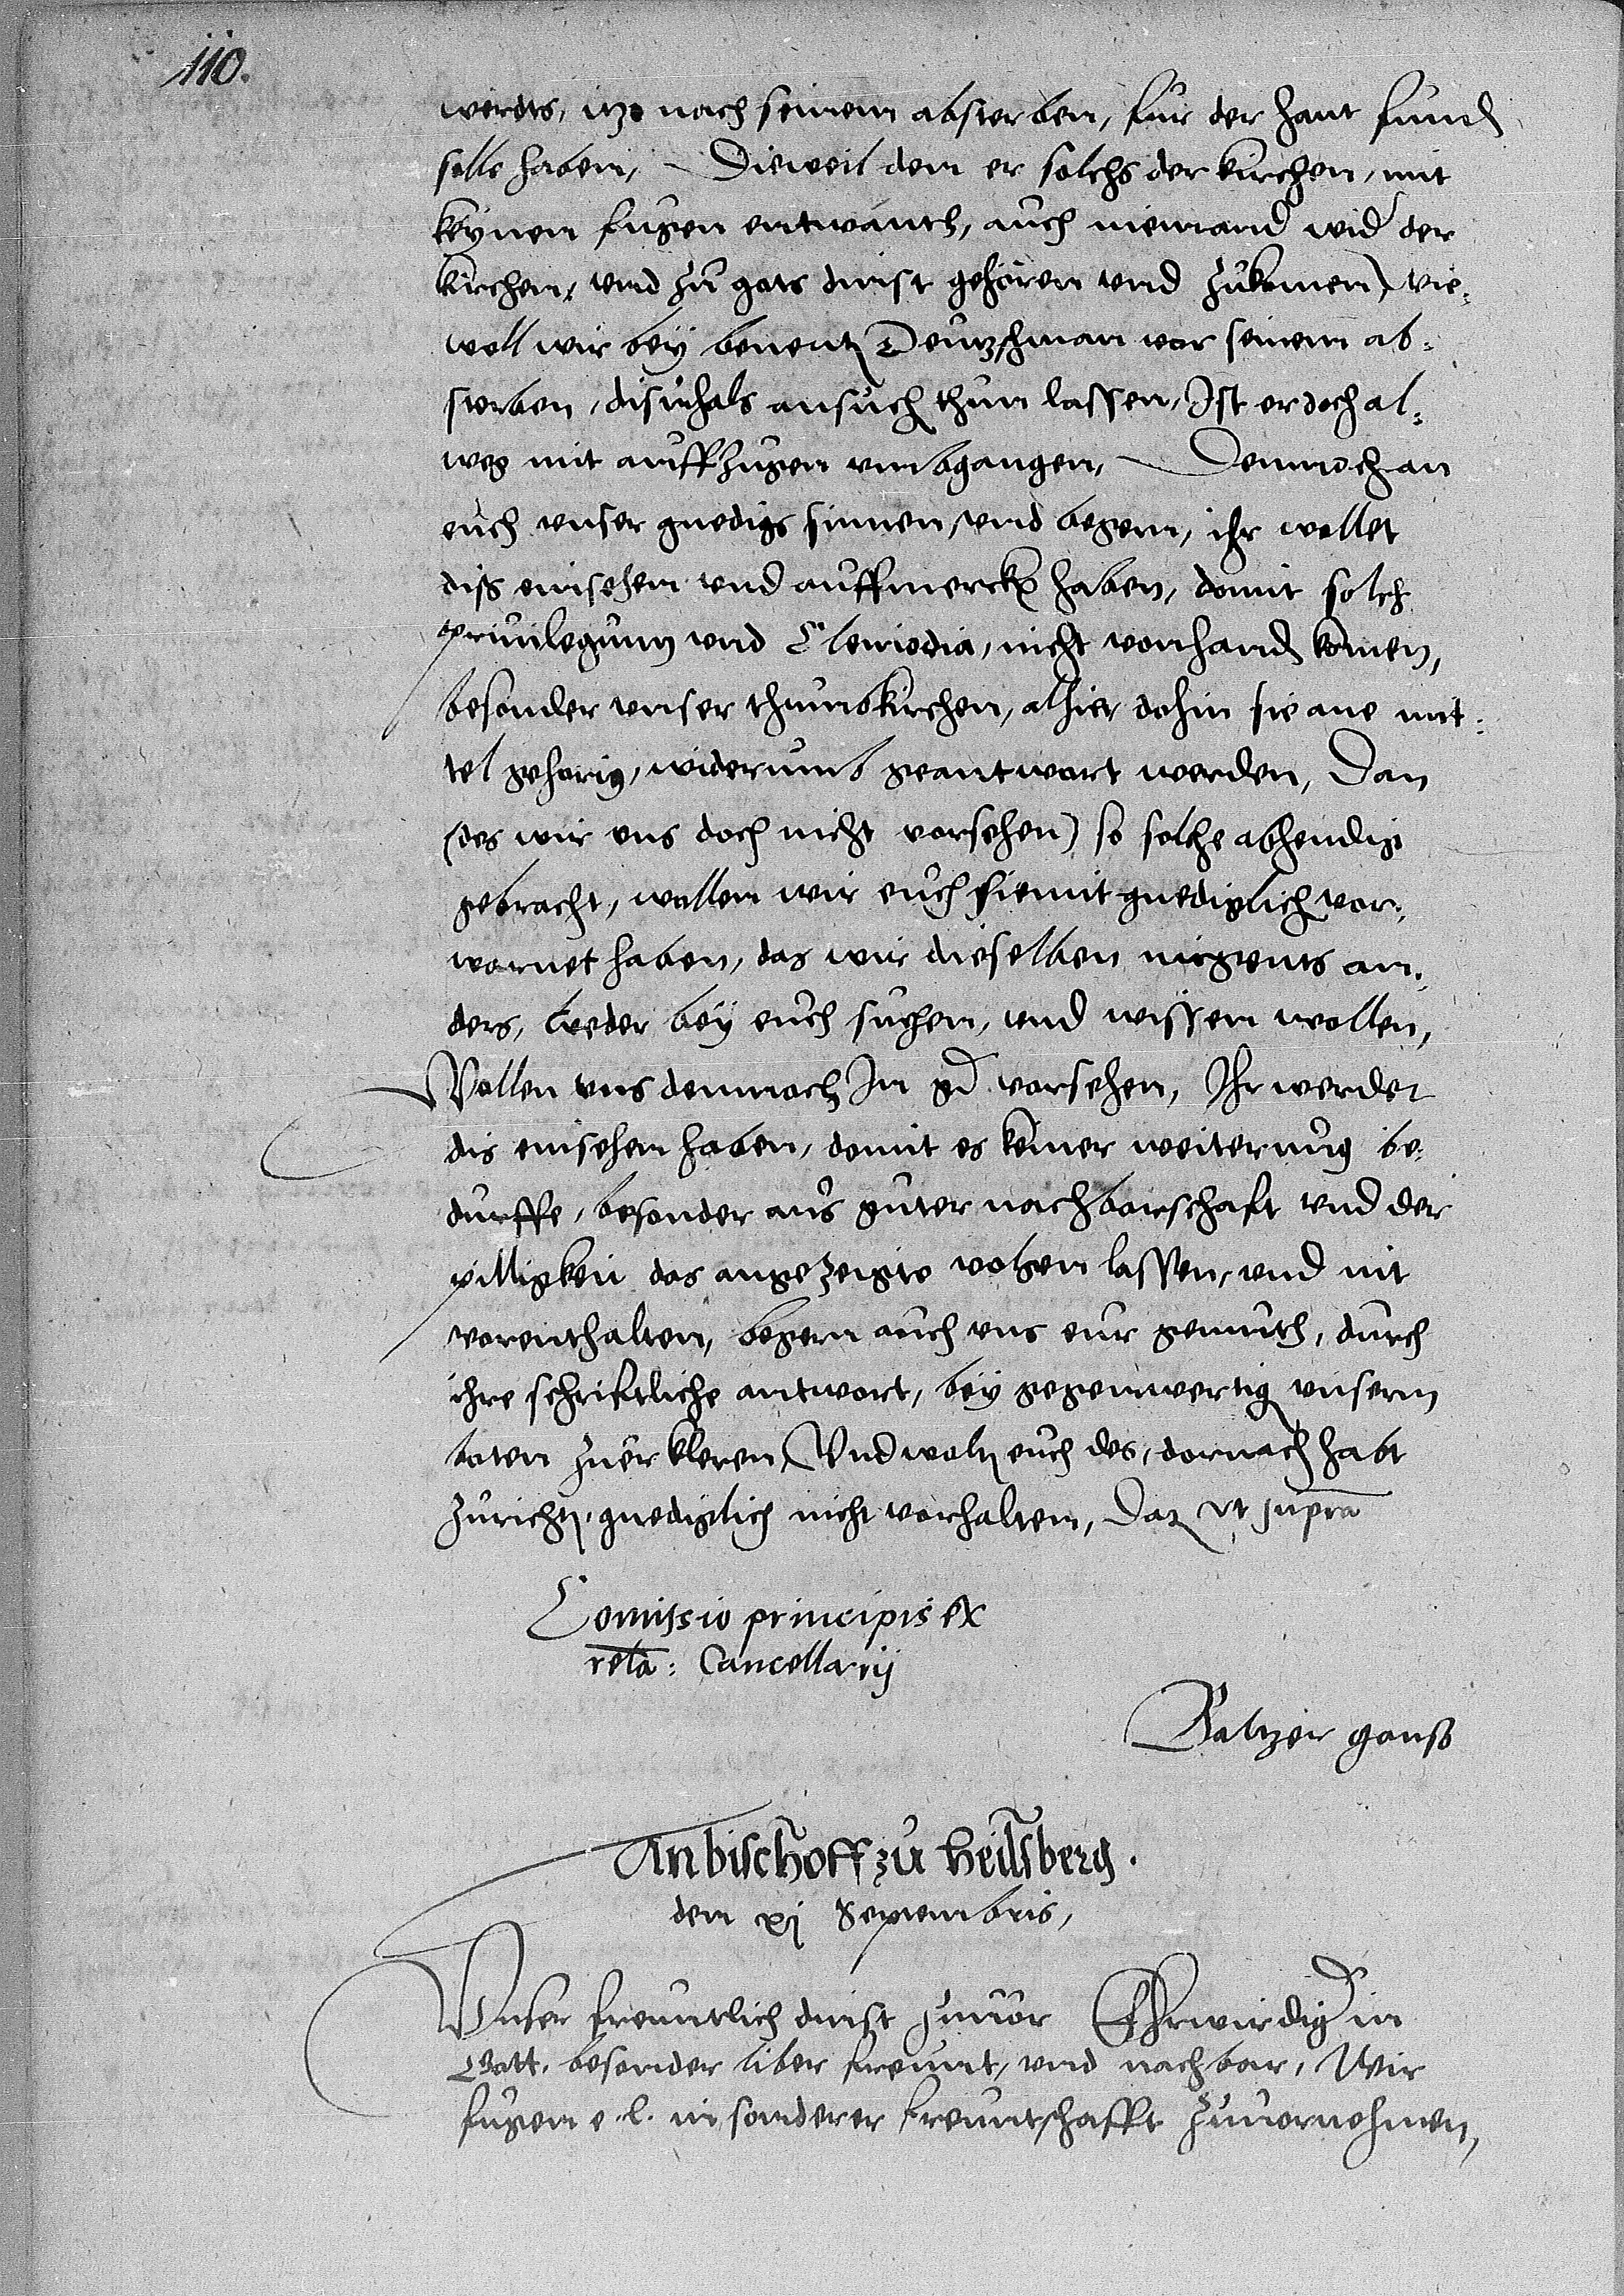 110.
werdts, itzo nach seinem absterben, fur der hant fund
solle haben, Dieweil dem er solchs der kirchen, mit
keynem fugen entwanth, auch niemand wid der
kirchen, vnd zu gots dinst gehoren vnd zukomen, wie¬
woll wir bey benentn Deutzschman vor seinem ab¬
sterben, disfhals ansuch thun lassen, Ist er doch al¬
weg mit auffzugen vmbgangen, Demnoch an
euch vnser gnedigs sinnen, vnd begern, ihr wollet
diss einsehen vnd auffmerckn haben, domit solch
priuilegium vnd Clenodia, nicht vonhand komen,
besonder vnser thumbkirchen, alhier dohin sie ane mit¬
tel gehorig, widerumb geantwort werden, Dan
(des wir vns doch nicht vorsehen) so solche abhendig
gebracht, wollen wir euch hiemit gnediglich vor¬
warnet haben, das wir dieselben nirgents an¬
ders, weder bey euch suchen, vnd wissen wollen,
Wollen vns demnoch In gd vorsehen, Ihr werdet
dis einsehen haben, domit es keiner weiterung be¬
durffe, besonder aus guter nachbarschaft vnd der
pilligkeit das angezeigte volgen lassen, vnd nit
vorenthalten, begern auch vns eur gemuth, durch
ihre schriftliche antwort, bey gegenwertig vnserm
boten zuerkleren, Vnd woltn euch des, dornach habt
zurichtn, gnediglich nicht vorhalten, Dat vt supra
Comissio principis ex
rela: Cancellarij
Baltzer ganss
An bischoff zu Heilsberg.
den xj Septembris,
Vnser freuntlich dinst zuuor Ehrwirdig in
Gott, besonder liber freunt, vnd nachbar, Wir
fugen e. l. in sonderer freuntschafft zuuornehmen,